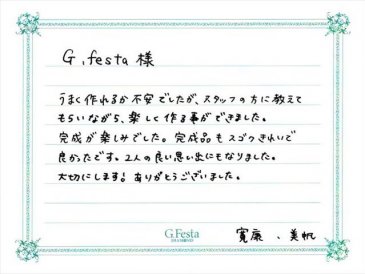 G.festa 様
うまく作れるか不安でしたが、スタッフの方に教えて
もらいながら、楽しく作る事ができました。
完成が楽しみでした。完成品もスゴクきれいで
良かったです。2人の良い思い出にもなりました。
大切にします! ありがとうございました。
G.Festa
DIAMOND
寛康 、美帆